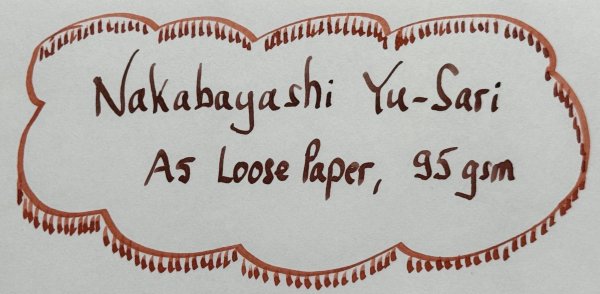 Nakabayashi Yu-Sari
A5 Loose Paper, 95 gsm